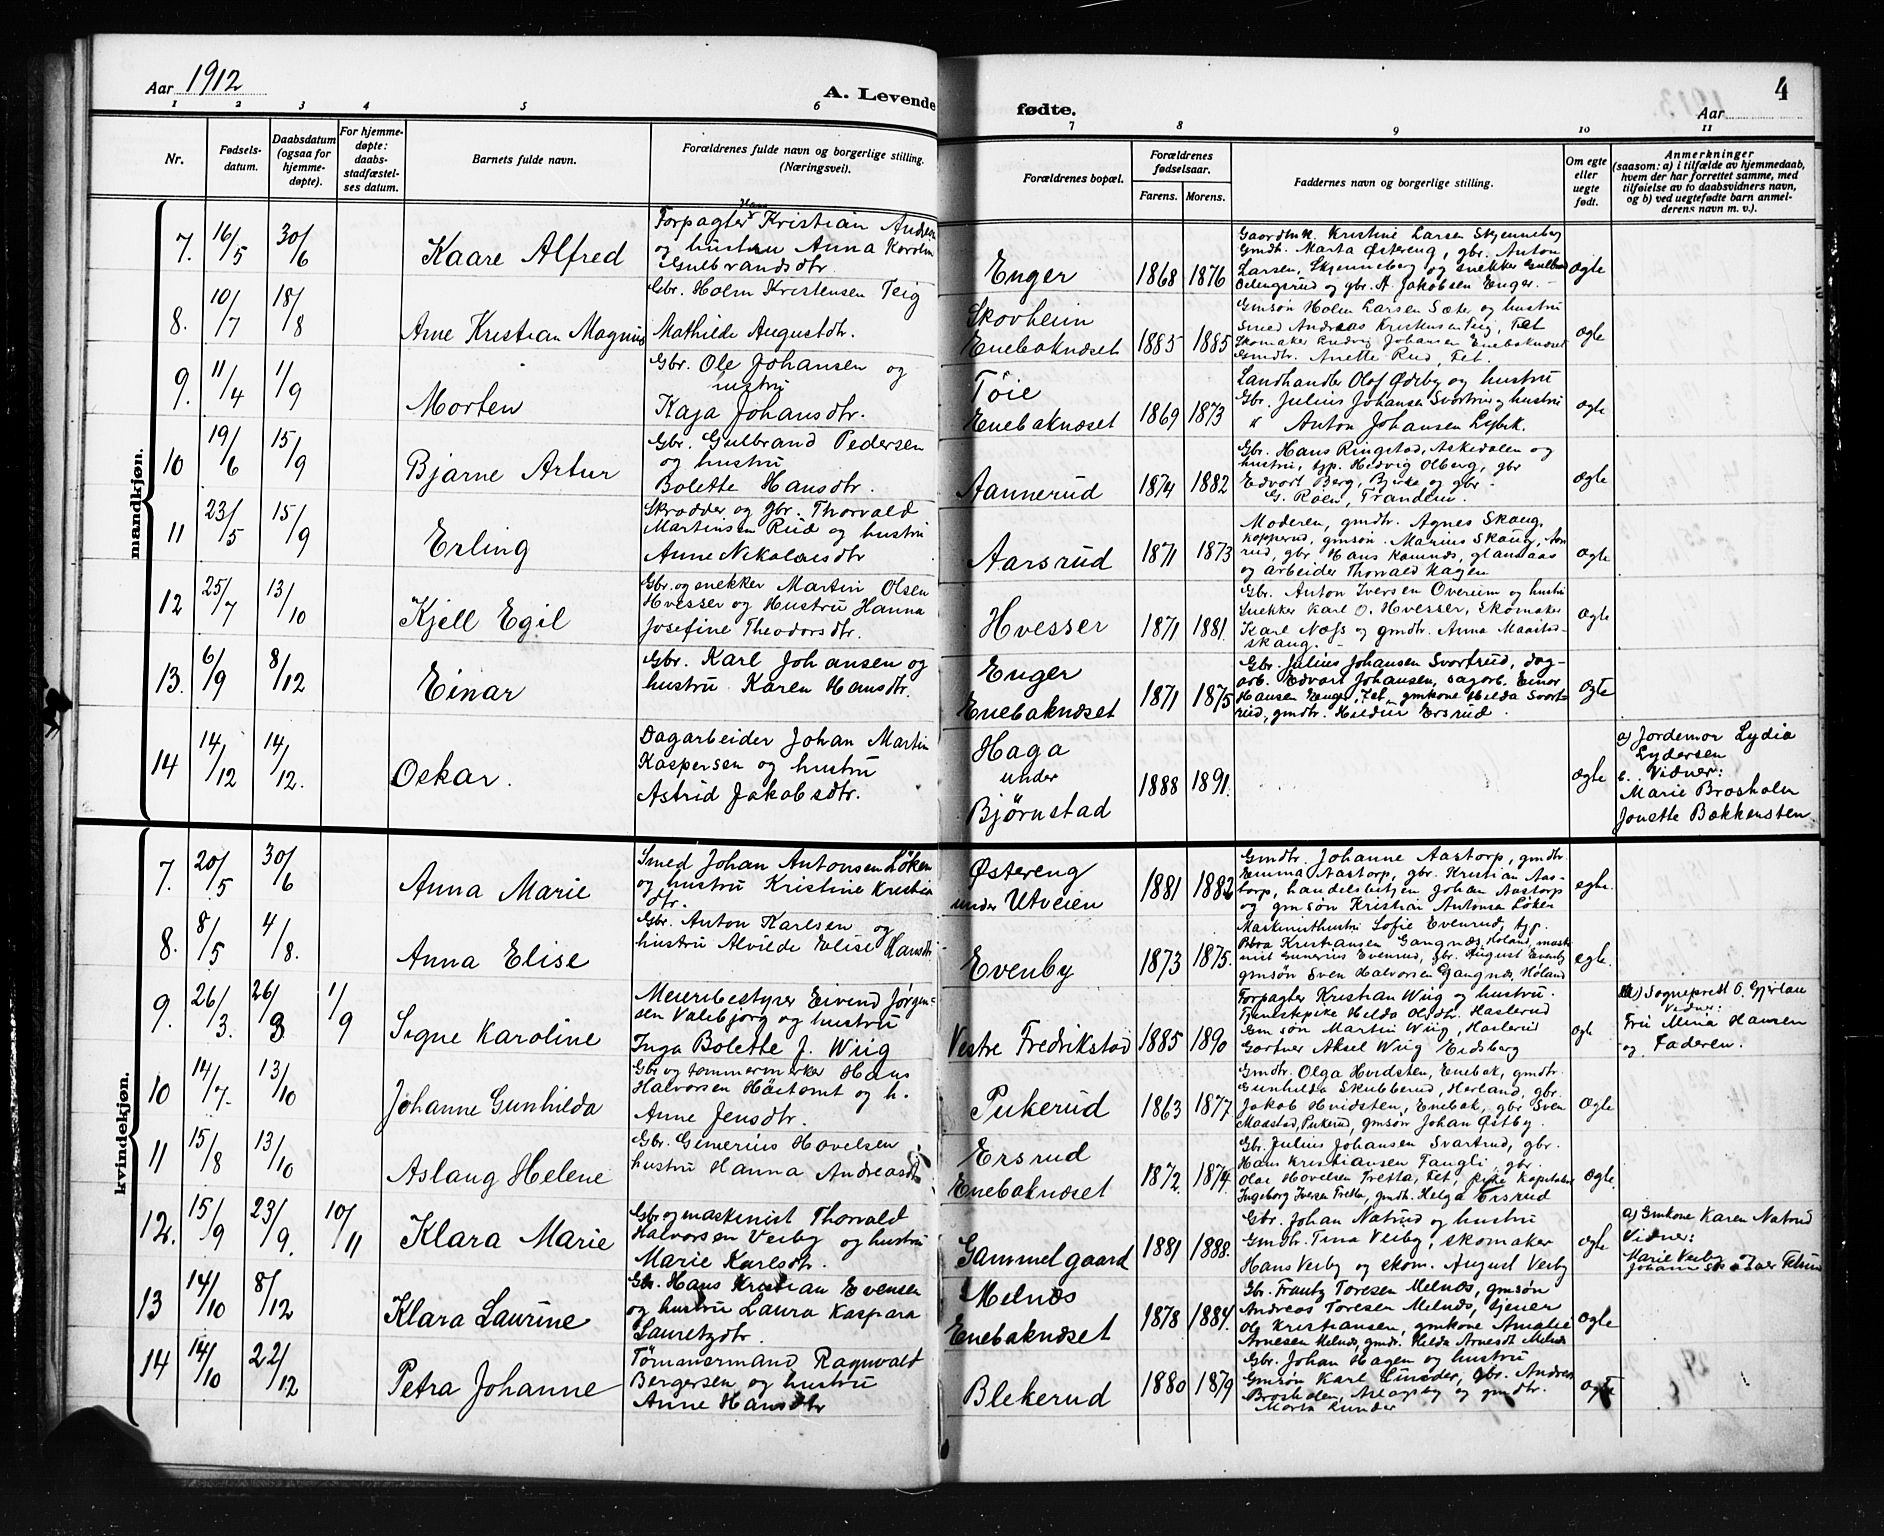 Aar 1912
A. Levende
fødte.
Aar
4
1 2 3 4 5 6 7 8 9 10 11
Nr.
Fødsels-
datum.
Daabsdatum
(ogsaa for
hjemme-
døpte).
For hjemme-
døpte:
daabs-
stadfæstel-
ses datum.
Barnets fulde navn.
Forældrenes fulde navn og borgerlige stilling.
(Næringsvei).
Forældrenes bopæl.
Forældrenes
fødselsaar.
Farens. Morens.
Faddernes navn og borgerlige stilling.
Om egte
eller
uegte
født.
Anmerkninger
(saasom: a) i tilfælde av hjemmedaab,
hvem der har forrettet samme, med
tilføielse av to daabsvidners navn,
og b) ved uegtefødte barn anmel-
derens navn m. v.).
mandkjøn.
7. 16/5 30/6 Kaare Alfred
Hans
Forpagter Kristian
og hustru Anna
Gulbrandsdtr
Enger 1868 1876
Gaardmk. Kristine Larsen Skjenneberg
Gmdtr. Marta Østereng, gbr. Anton
Larsen, Skjenneberg og snekker
og gbr. A. Jakobsen Enger.
Ægte
8. 10/7 18/8 Arne Kristian Magnus
Gbr. Holm Kristensen Teig
Mathilde Augustdtr.
Skovheim
Enebaknæset 1885 1885
Gmsøn Holm Larsen Sæter og hustru
Smed Andreas Kristensen Teig, Fet
Skomaker Ludvig Johansen Enebaknæset
Gmdtr. Anette Rud, Fet.
ægte
9. 11/4 1/9 Morten
Gbr. Ole Johansen og
hustru
Kaja Johansdtr.
Tøie
Enebaknæset 1869 1873
Landhandler Olaf Ødeby og hustru
Gbr. Julius Johansen og hustru
" Anton Johansen
ægte
10 19/6 15/9 Bjarne Artur
Gbr. Gulbrand Pedersen
og hustru
Bolette Hansdtr.
Aannerud 1874 1882
Gbr. Hans Ringstad, Askedalen og
hustru, typ. Hedvig Olberg, gbr
Edvart Berg, Bjerke og gbr.
G. Røen, Trandem.
ægte
11 23/5 15/9 Erling
Skrædder og gbr. Thorvald
Martinsen Rud og hustru
Anne Nikolaisdtr
Aarsrud 1871 1873
Moderen, gmdtr. Agnes Skaug,
Kopperud, gmsøn. Marius Skaug,
rud, gbr Hans
og arbeider Thorvald Hagen
ægte
12 25/7 13/10 Kjell Egil
Gbr. og snekker Martin Olsen
Hvesser og Hustru Hanna
Josefine Theodorsdtr.
Hvesser 1871 1881
Gbr. Anton Iversen Overeim og hustru
Snekker Karl O. Hvesser, Skomaker
Karl Næss og gmdtr. Anna
skaug.
ægte
13. 6/9 8/12 Einar
Gbr. Karl Johansen og
hustru Karen Hansdtr.
Enger
Enebaknæset 1871 1875
Gbr. Julius Johansen Svartrud, dag-
arb. Edvart Johansen, sagarb. Einar
Hansen Enger, Fet, gmkone Hilda Svart-
rud, gmdtr. Hildur Ersrud.
ægte
14 14/12 14/12. Oskar.
Dagarbeider Johan Martin
Kaspersen og hustru
Astrid Jakobsdtr.
Haga
under
Bjørnstad 1888 1891.
ægte
a) Jordemor Lydia
Lydersen
Vidner:
Marie Brosholm
Jonette Bakkensten
kvindekjøn.
7. 20/5 30/6 Anna Marie
Smed Johan Antonsen Løken
og hustru Kristine
dtr.
Østereng
under Utveien 1881 1882
Gmdtr. Johanne Aastorp, gmdtr.
Emma Aastorp, gbr. Kristian Aas-
torp, handelsbetjen Johan Aastorp
og gmsøn Kristian Antonsen Løken
egte.
8. 8/5 4/8. Anna Elise
Gbr. Anton Karlsen og
hustru Alvilde Elise Hansdtr
Evenby 1873 1875.
Maskinisthustru Sofie Evenrud, typ.
Kristiansen Gangnæs, Høland, maski-
nist Gunerius Evenrud, gbr. August Evenby
gmsøn Sven Halvorsen Gangnæs Høland
egte.
9. 26/3. 26/3 1/9 Signe Karoline
Meieribestyrer Eivind Jørgen-
sen Valebjørg og hustru
Inga Bolette J. Wiig
Vestre Fredrikstad 1885 1890
Forpagter Kristian Wiig og hustru.
Tjenestepike Hilda Olsdtr. Haslerud
Gmsøn Martin Wiig, Haslerud
Gartner Aksel Wiig Eidsberg
ægte
a) Sogneprest O. Gjerløu
Vidner:
Fru Mina Hansen
og Faderen.
10 14/7 13/10 Johanne Gunhilda
Gbr og tømmermerker Hans
Halvorsen Høitomt og h.
Anne Jensdtr.
Pukerud 1863 1877
Gmdtr. Olga Hvidsten, Enebak, gmdtr.
Gunhilda Skubberud, Høland, gbr.
Jakob Hvidsten, Enebak, gbr Sven
Maastad, Pukerud, gmsøn Johan Østby.
Ægte
11 15/8 13/10 Aslaug Helene
Gbr. Gunerius Hovelsen
hustru Hanna Andreasdtr
Ersrud
Enebaknæset 1872. 1874.
Gbr. Julius Johansen Svartrud, gbr.
Hans Kristiansen Tangli, gbr.
Olai Hovelsen Tretta, Fet, pike
Ingeborg Iversen Tretta, gmdtr. Helga Ersrud
Ægte.
12. 15/9 23/9. 10/11 Klara Marie
Gbr og maskinist Thorvald
Halvorsen Veiby og hustru
Marie Karlsdtr.
Gammelgaard 1881 1888.
Gbr. Johan Natrud og hustru
Gmdtr. Tina Veiby, skomaker
Hans Veiby og skom. August Veiby
ægte
a) Gmkone Karen Natrud
Vidner:
Marie Veiby og
13 14/10 8/12 Klara Laurine
Gbr. Hans Kristian Evensen
og hustru Laura Kaspara
Lauretzdtr.
Melnæs
Enebaknæset 1878 1884.
Gbr. Frantz Toresen Melnæs, gmsøn
Andreas Toresen Melnæs, tjener
Ole Kristiansen, gmkone Amalie
Arnesen Melnæs, gmdtr. Hilda Arnesdt Melnæs
Ægte
14 14/10 22/12 Petra Johanne
Tømmermand Ragnvald
Bergersen og hustru
Anne Hansdtr
Blekerud 1880 1879
Gbr. Johan Hagen og hustru
Gmsøn Karl Lunder, gbr. Andreas
Brosholen, og gmdtr.
Marta Lunder
ægte